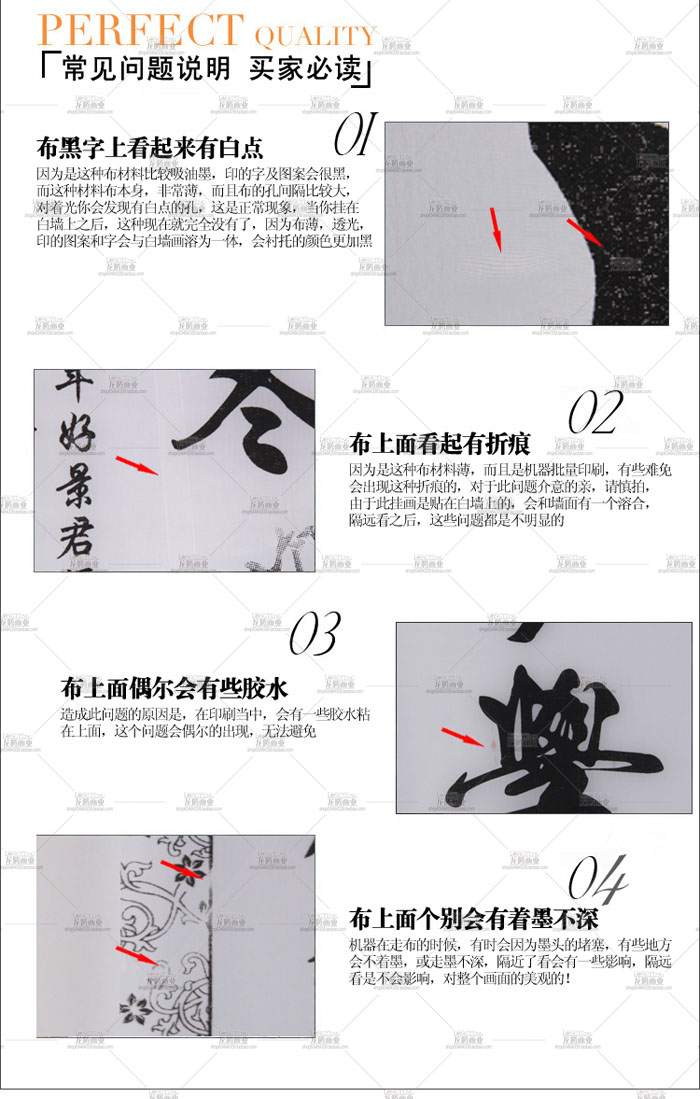 PERFECT QUALITY
「常见问题说明 买家必读」
01
布黑字上看起来有白点
因为是这种布材料比较吸油墨，印的字及图案会很黑，
而这种材料布本身，非常薄，而且布的孔间隔比较大，
对着光你会发现有白点的孔，这是正常现象，当你挂在
白墙上之后，这种现在就完全没有了，因为布薄，透光，
印的图案和字会与白墙画溶为一体，会衬托的颜色更加黑
年
好
景
君
02
布上面看起有折痕
因为是这种布材料薄，而且是机器批量印刷，有些难免
会出现这种折痕的，对于此问题介意的亲，请慎拍，
由于此挂画是贴在白墙上的，会和墙面有一个溶合，
隔远看之后，这些问题都是不明显的
03
布上面偶尔会有些胶水
造成此问题的原因是，在印刷当中，会有一些胶水粘
在上面，这个问题会偶尔的出现，无法避免
04
布上面个别会有着墨不深
机器在走布的时候，有时会因为墨头的堵塞，有些地方
会不着墨，或走墨不深，隔近了看会有一些影响，隔远
看是不会影响，对整个画面的美观的！
龙腾商业